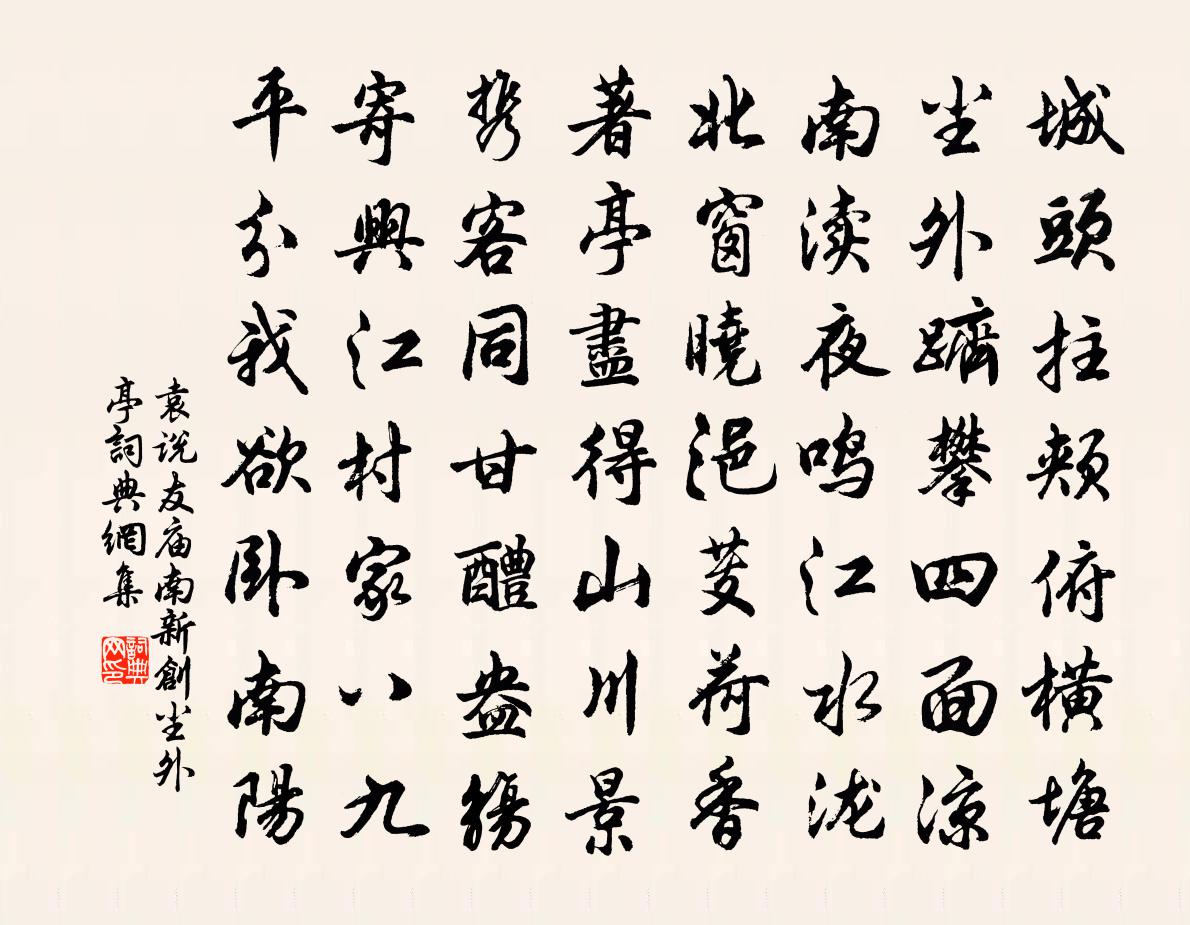 城頭拄頰俯橫塘
尘外躋攀四面涼
南渎夜鸣江水泷
北窗曉浥芰荷香
著亭盡得山川景
携客同甘醴盎觴
寄興江村家八九
平分我欲卧南陽
袁说友庙南新創尘外
亭詞典網集
詞典网印